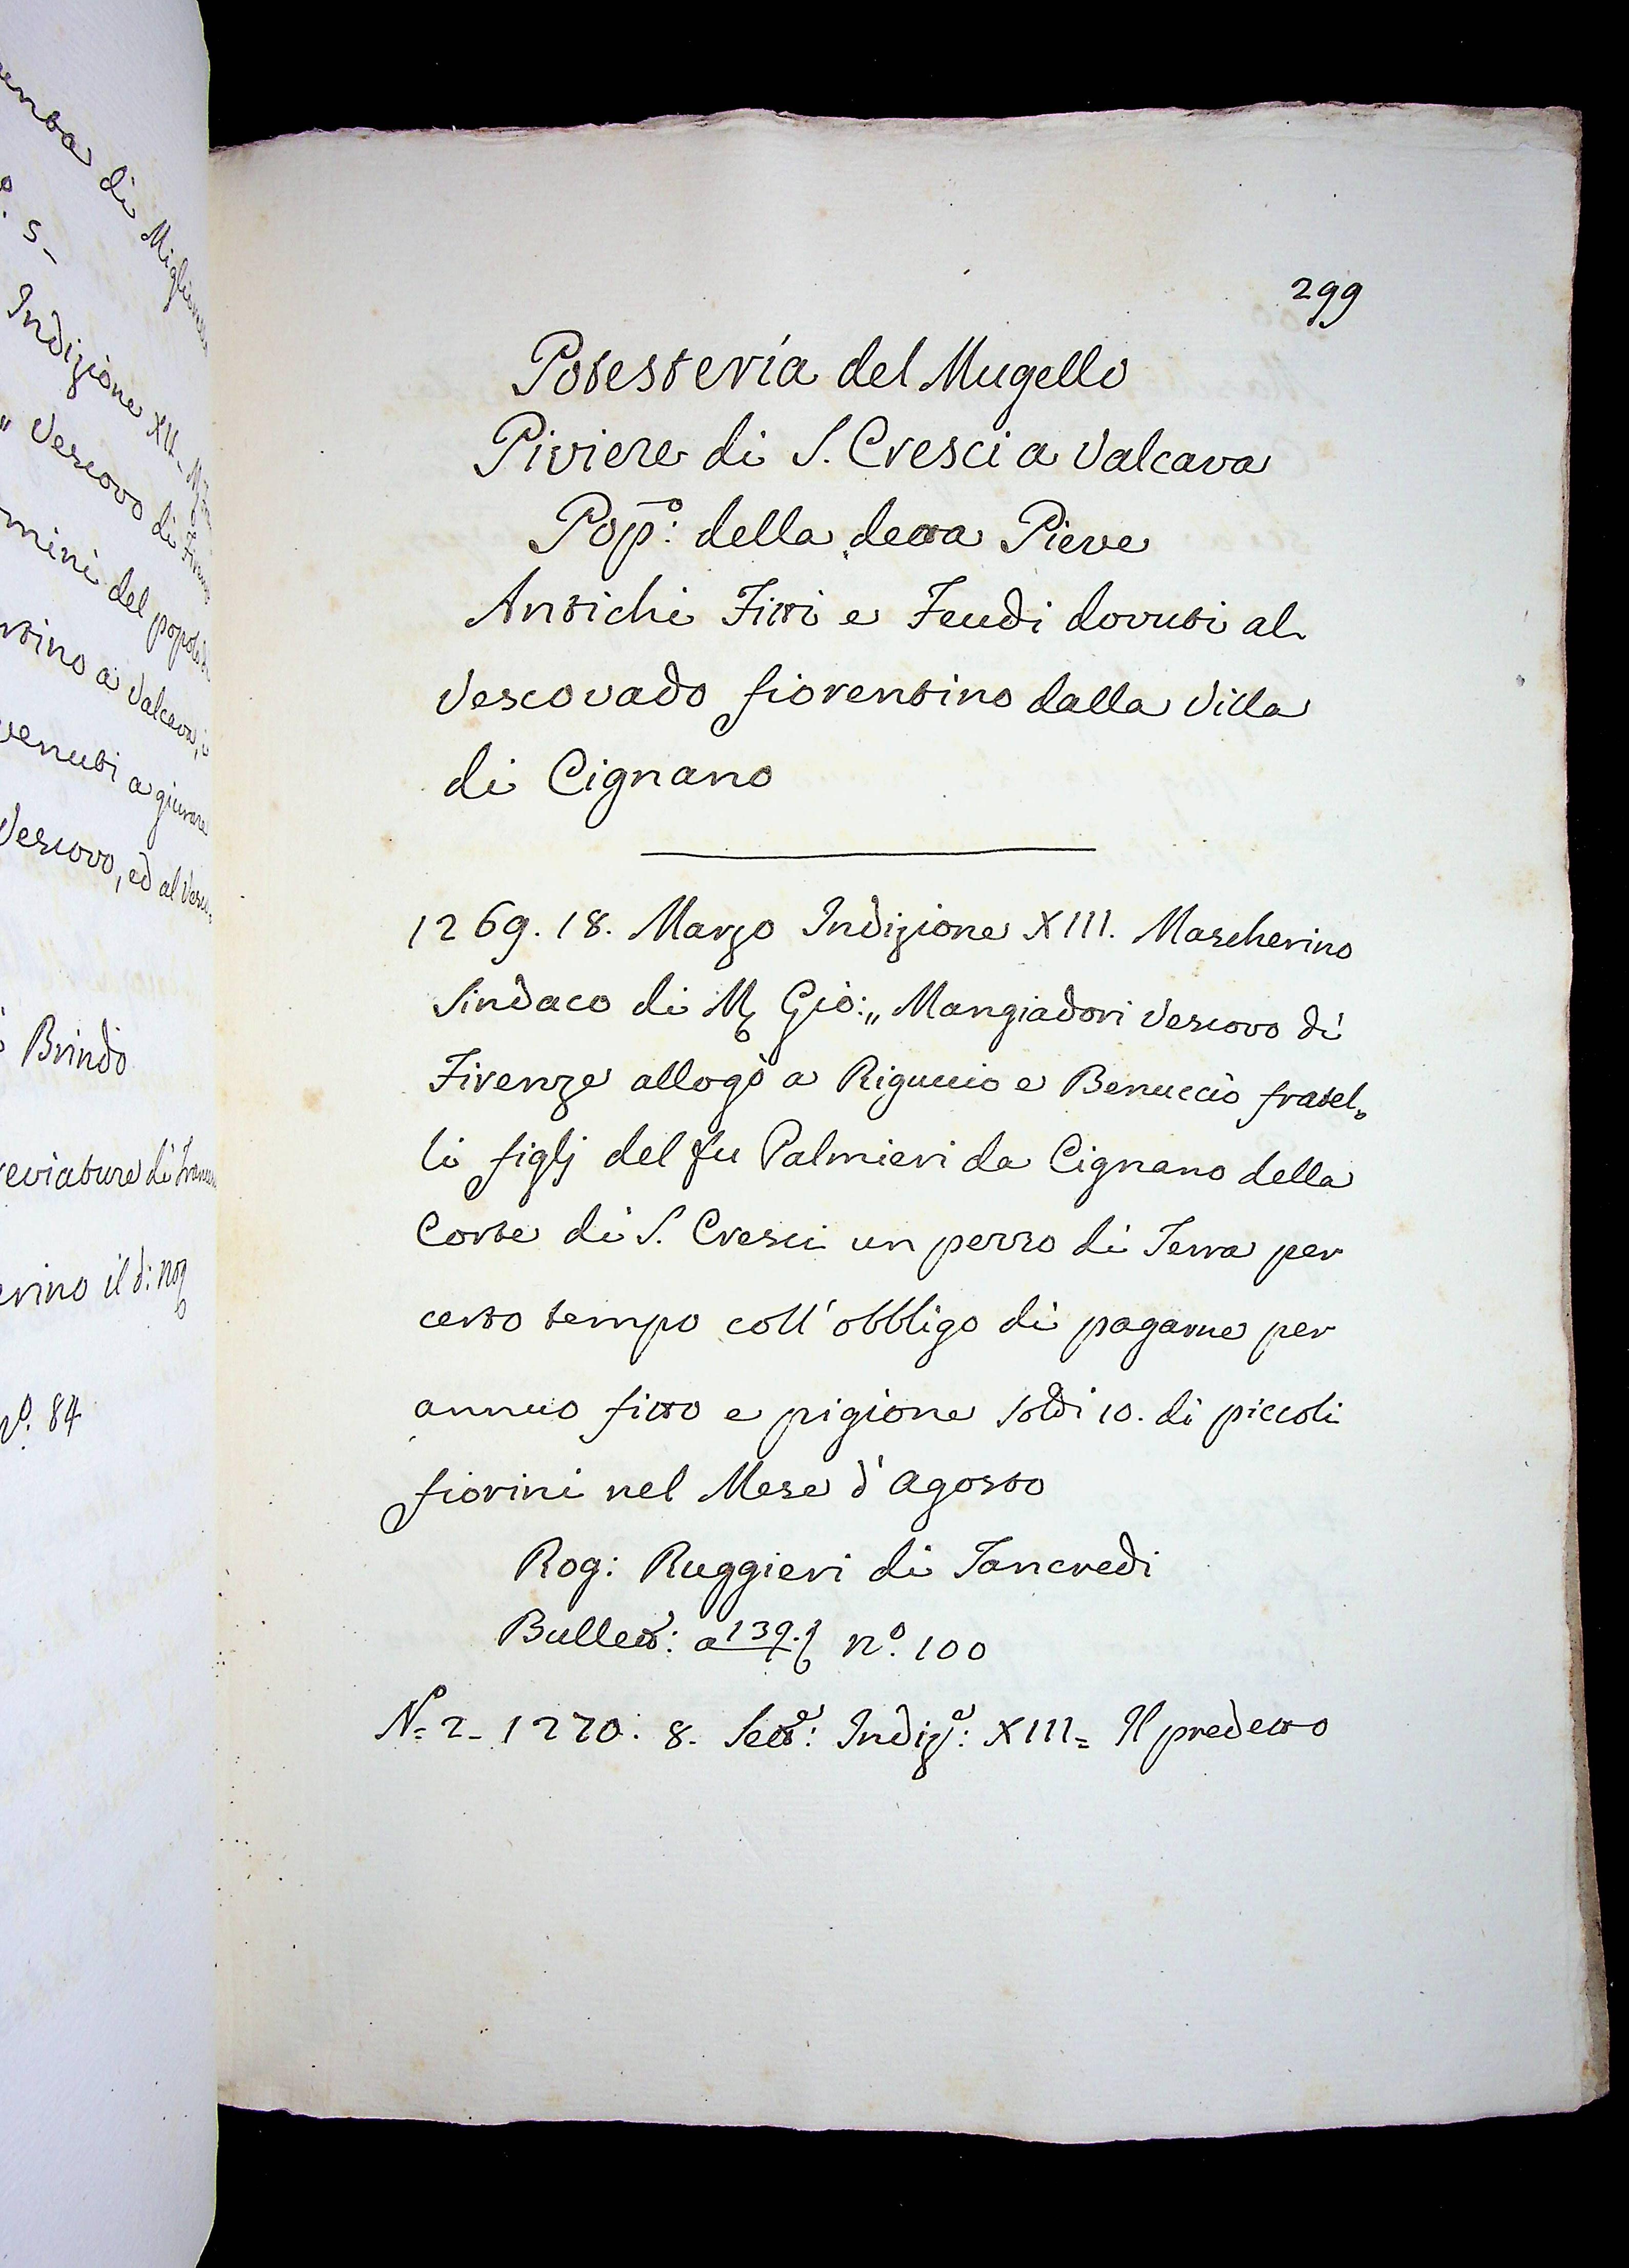 299
Potesteria del Mugello
Piviere di S. Cresci a Valcava
Popo: della detta Pieve
Antichi Fitti e Feudi dovuti al
Vescovado fiorentino dalla Villa
di Cignano
1269. 18. Marzo Indizione XIII. Mascherino
Sindaco di M Gio:„ Mangiadori Vescovo di
Firenze allogò a Riguccio e Benuccio fratel„
li figlj del fu Palmieri da Cignano della
Corte di S. Cresci un pezzo di Terra per
certo tempo coll'obbligo di pagarne per
annuo fitto e pigione soldi 10. di piccoli
fiorini nel Mese d'Agosto
Rog: Ruggieri di Tancredi
Bullett: a 139. no. 100
No= 2- 1270. 8. Sette: Indize: XIII= Il predetto
di
S-
Indizione XII-
Vescovo di
mini del popolo
tino a Valcava,
venuti a giurare
Vescovo, ed al
Brindo
rino il di:
no. 84